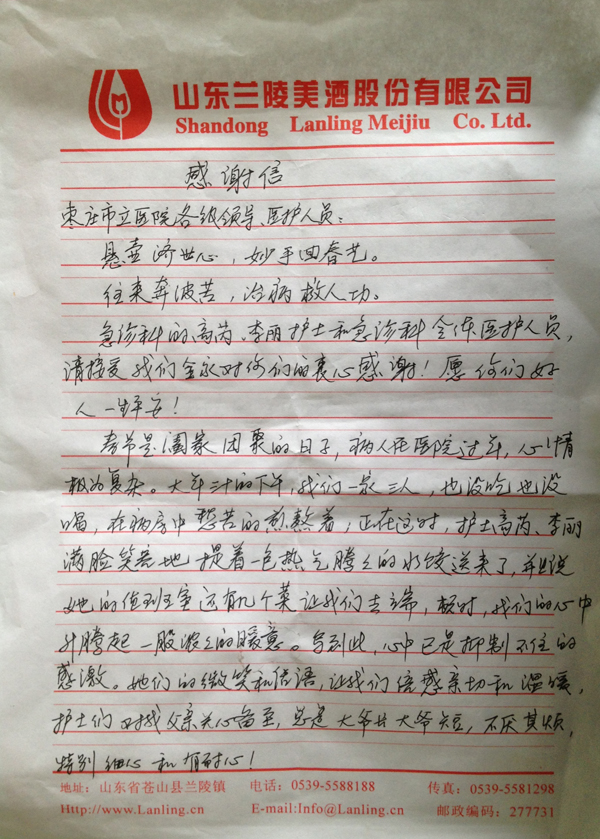 山东兰陵美酒股份有限公司
Shandong Lanling Meijiu Co. Ltd.
感谢信
枣庄市立医院各级领导、医护人员：
悬壶济世心，妙手回春艺。
往来奔波苦，治病救人功。
急诊科的高芮、李丽护士和急诊科全体医护人员，
请接受我们全家对你们的衷心感谢！愿你们好
人一生平安！
春节是阖家团聚的日子，病人在医院过年，心情
极为复杂。大年三十的下午，我们一家三人，也没吃也没
喝，在病房中愁苦的煎熬着，正在这时，护士高芮、李丽
满脸笑容地提着一包热气腾腾的水饺送来了，并且说
她的值班室还有几个菜让我们去端，顿时，我们的心中
升腾起一股浓浓的暖意。写到此，心中已是抑制不住的
感激。她们的微笑和话语，让我们倍感亲切和温暖，
护士们对我父亲关心备至，总是大爷长大爷短，不厌其烦，
特别细心和有耐心！
地址：山东省苍山县兰陵镇 电话：0539-5588188 传真：0539-5581298
Http://www.Lanling.cn E-mail:Info@Lanling.cn 邮政编码：277731